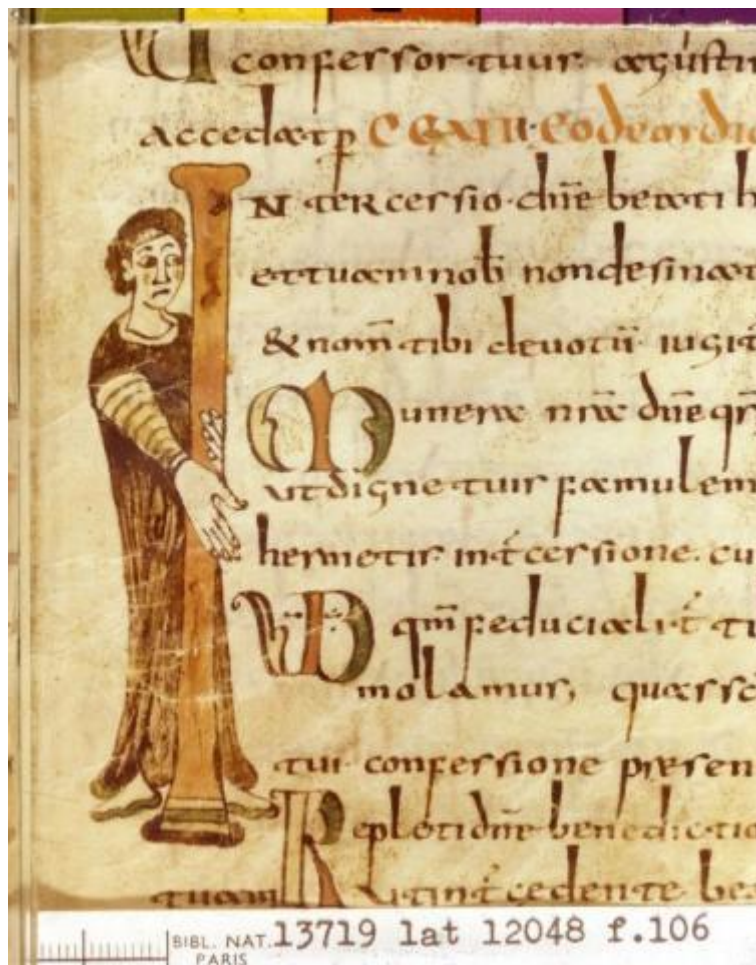 confessor tuus agusti
accedat p̄ CCXIII eode die
INtercessio dn̄e beati h
et tuam nob̄ non desinat
& nom̄ tibi devotū iugit
Munera nr̄a dn̄e qs̄
ut digne tuis famulem
hermetis int̄cessione cu
VD qm̄ feduciali t̄ tu
molamus, quas sc̄
tui confessione presen
Repleti dn̄e benedictio
tuam ut int̄cedente bea
BIBL. NAT. 13719 lat 12048 f.106
PARIS